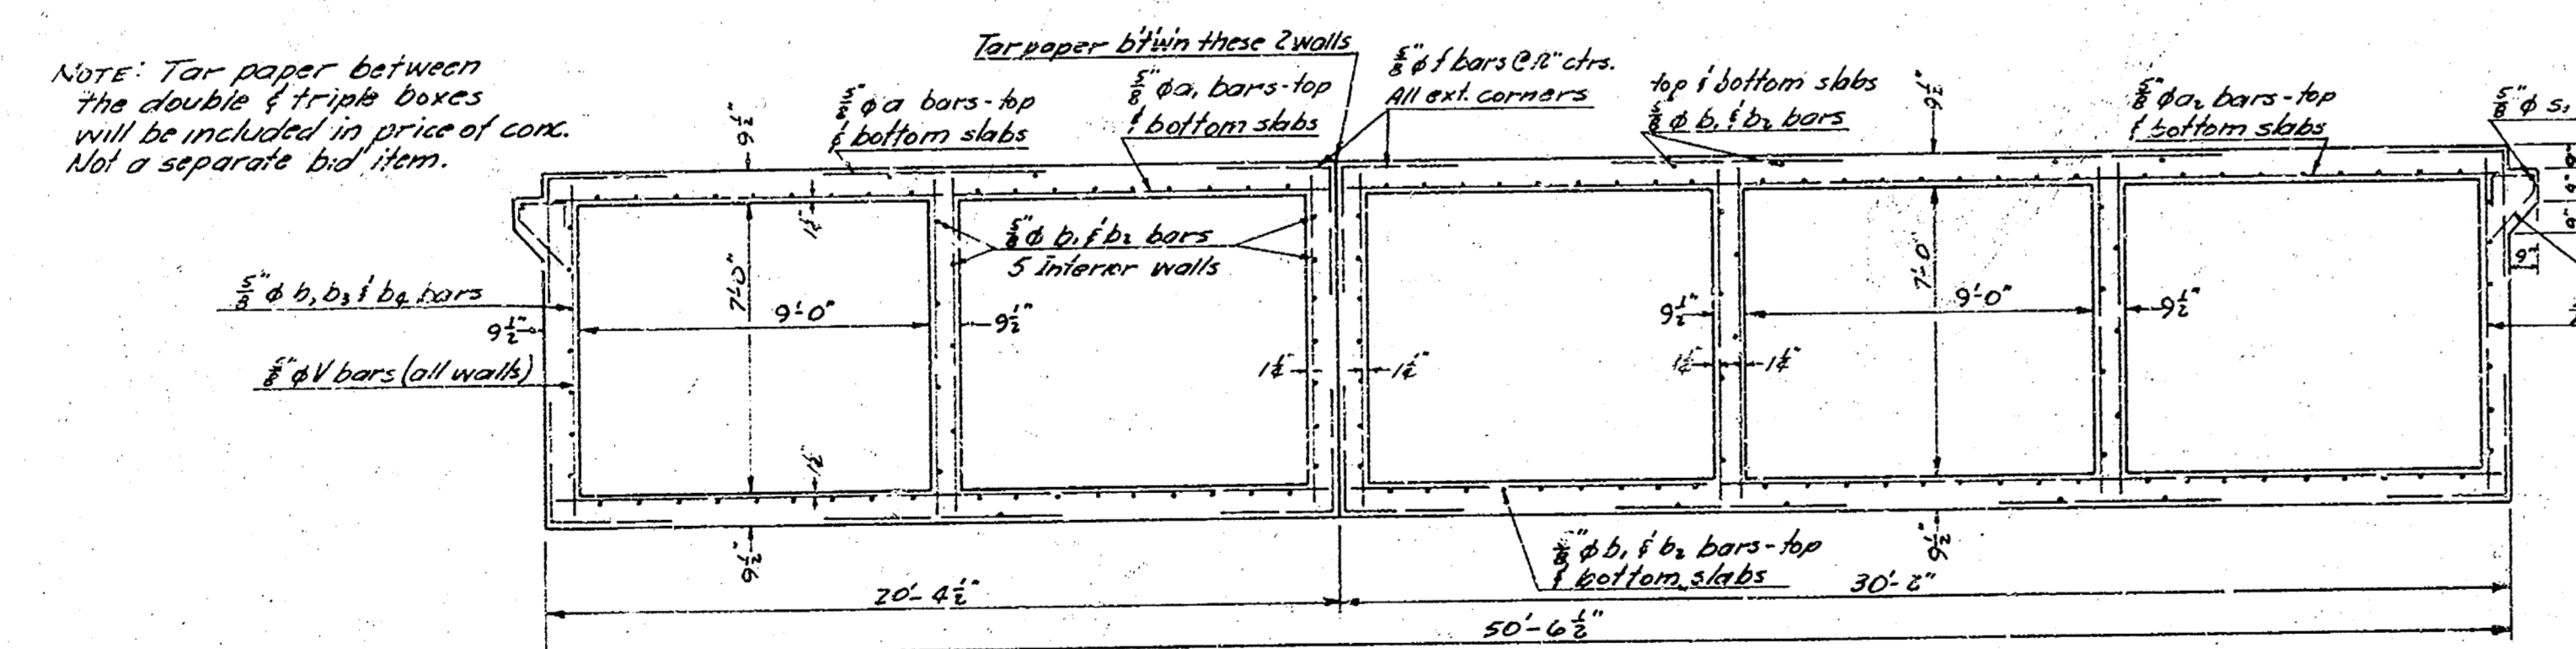 NOTE: Tar paper between
the double & triple boxes
will be included in price of conc.
Not a separate bid item.
Tar paper b'tw'n these 2 walls
5/8" φ a bars-top
& bottom slabs
5/8" φ a₁ bars-top
& bottom slabs
5/8" φ f bars @ 12" ctrs.
All ext. corners
top & bottom slabs
5/8" φ b₁ & b₂ bars
5/8" φ a₂ bars-top
& bottom slabs
5/8" φ s₁
9 1/2"
9 1/2"
9"
9"
9"
9"
1 1/2"
5/8" φ b₁ & b₂ bars
5 Interior walls
5/8" φ b, b₃ & b₄ bars
7'-0"
7'-0"
9 1/2"
9'-0"
9 1/2"
9 1/2"
9'-0"
9 1/2"
5/8" φ V bars (all walls)
1 1/4"
1 1/4"
1 1/4"
1 1/4"
1 1/2"
9 1/2"
9 1/2"
5/8" φ b₁ & b₂ bars-top
& bottom slabs
20'-4 1/2"
30'-2"
50'-6 1/2"